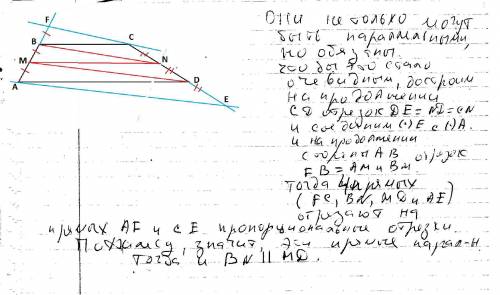 F
B
C
M
N
A
D
E
Они не только могут
быть параллельными,
но обязаны.
чтобы это стало
очевидным, достроим
на продолжении
CD отрезок DE=ND=CN
и соединим (·)E с (·)A.
и на продолжении
стороны AB отрезок
FB=AM и BM
тогда 4 прямых
(FC, BN, MD и AE)
отрезают на
прямых AF и CE пропорциональные отрезки.
значит, эти прямые парал-н.
тогда и BN || MD.